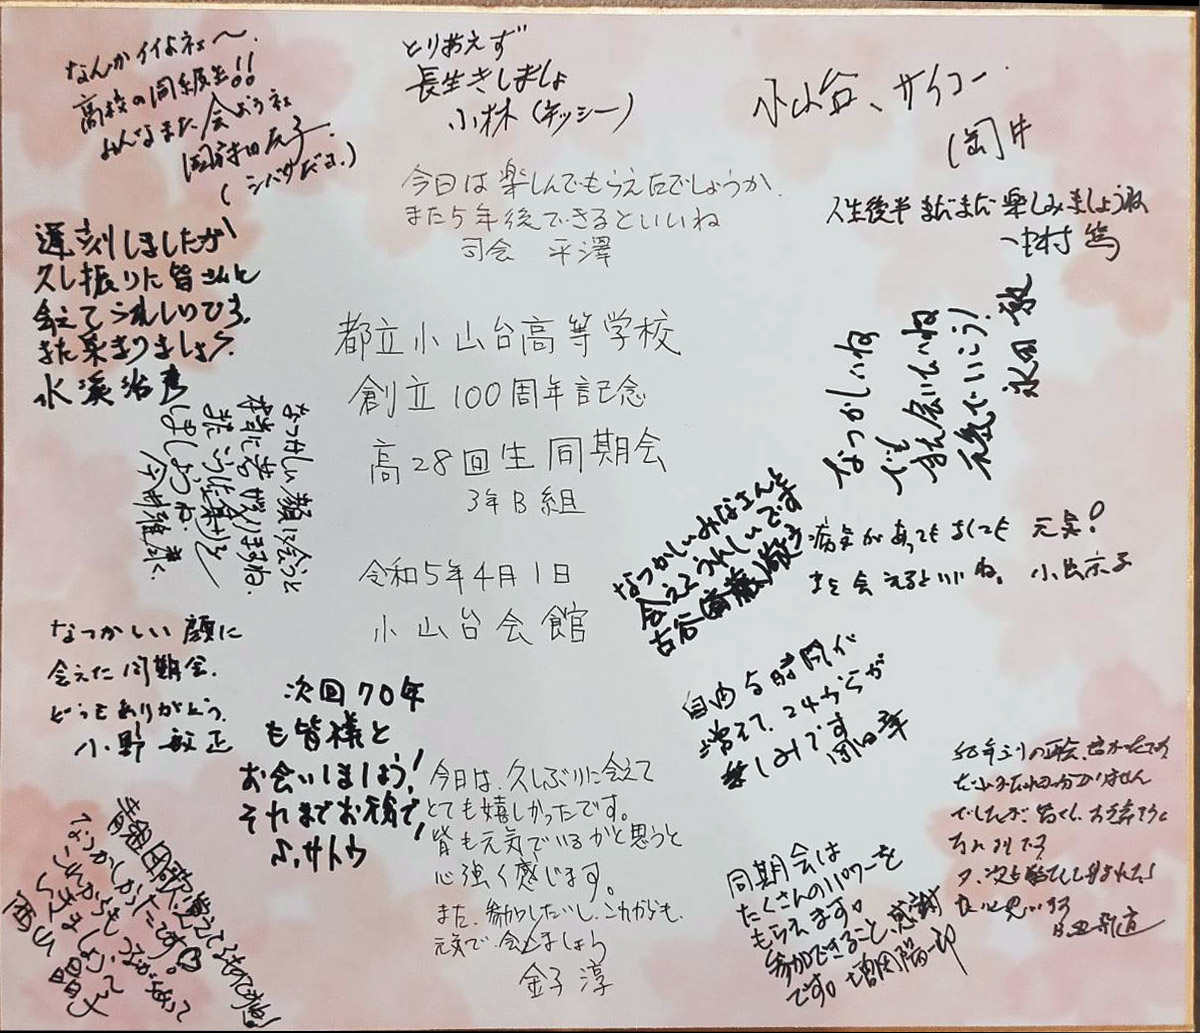 なんかイイよネ〜.
高校の同級生!!
みんなまた会おうネ
(シバサだヨ.)
とりあえず
長生きしましょ
小林(キッシー)
小山台、サイコー
今日は楽しんでもらえたでしょうか.
また5年後できるといいね
司会 平澤
人生後半まだまだ楽しみましょうね
中村 篤
遅刻しましたが
久し振りに皆さんと
会えてうれしいひる.
また集まりましょう.
水溪治彦
都立小山台高等学校
創立100周年記念
高28回生同期会
3年B組
令和5年4月1日
小山台会館
なつかしいね
でも
また会いたいね
元気でいこう!
永田 敏
なつかしい顔に会うと
本当に若返りますね.
また
ましょうね
なつかしいみなさんと
会えてうれしいです
病気があってもなくても 元気!
また会えるといいね。
なつかしい顔に
会えた同期会.
どうもありがとう.
小野 敏正
次回70年
も皆様と
お会いしましょう!
それまでお元気で!
♪サトウ
自由な時間が
増えて、これからが
楽しみです
今日は、久しぶりに会えて
とても嬉しかったです。
皆も元気でいるかと思うと
心強く感じます。
また、参加したいし、これからも、
元気で、会いましょう
金子 淳
同期会は
たくさんのパワーを
もらえます。
参加できること、感謝
です。増岡陽一郎
でしたが
良いと思います
青龍団歌、覚えてるものですね!
なつかしかったです。
これからもつながって
いきましょう。
西山 晶子